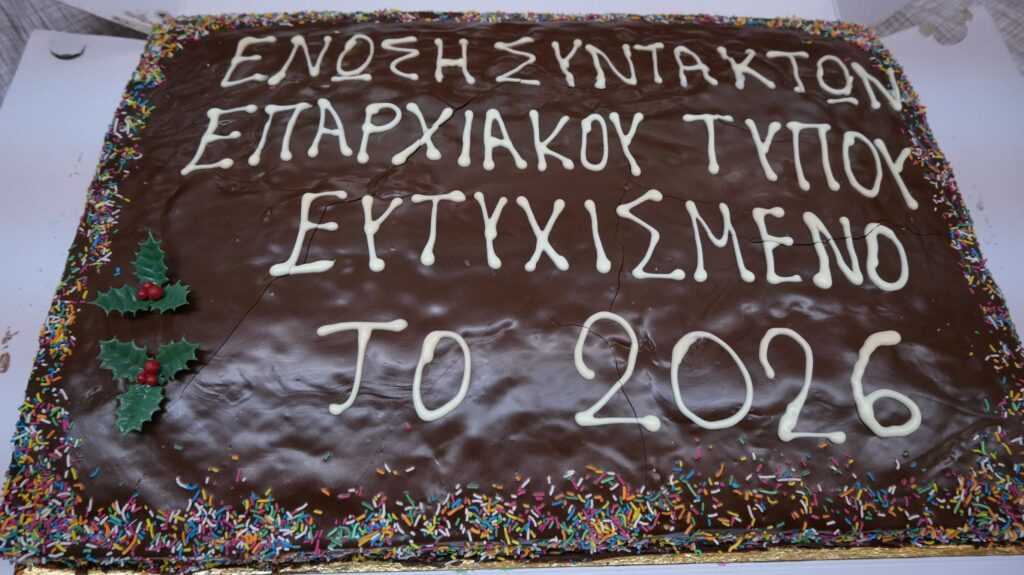 ΕΝΩΣΗ ΣΥΝΤΑΚΤΩΝ
ΕΠΑΡΧΙΑΚΟΥ ΤΥΠΟΥ
ΕΥΤΥΧΙΣΜΕΝΟ
ΤΟ 2026